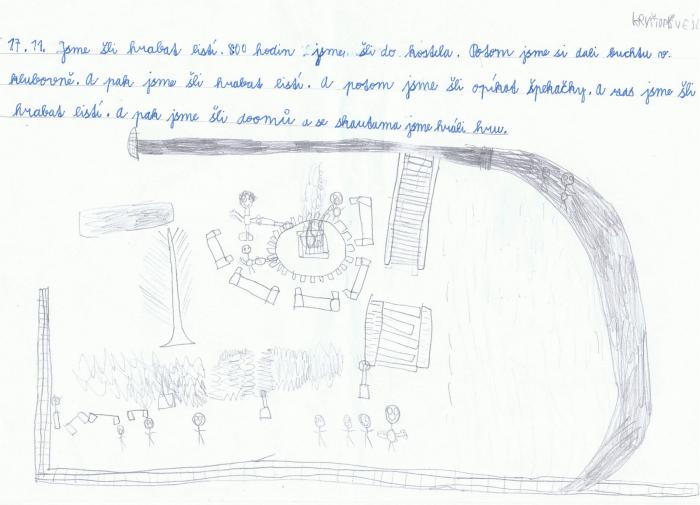 17.11. Jsme šli hrabat listí. 800 hodin jsme šli do kostela. Potom jsme si dali buchtu v
klubovně. A pak jsme šli hrabat listí. A potom jsme šli opíkat špekačky. A zas jsme šli
hrabat listí. A pak jsme šli doomů a se skautama jsme hráli hru.